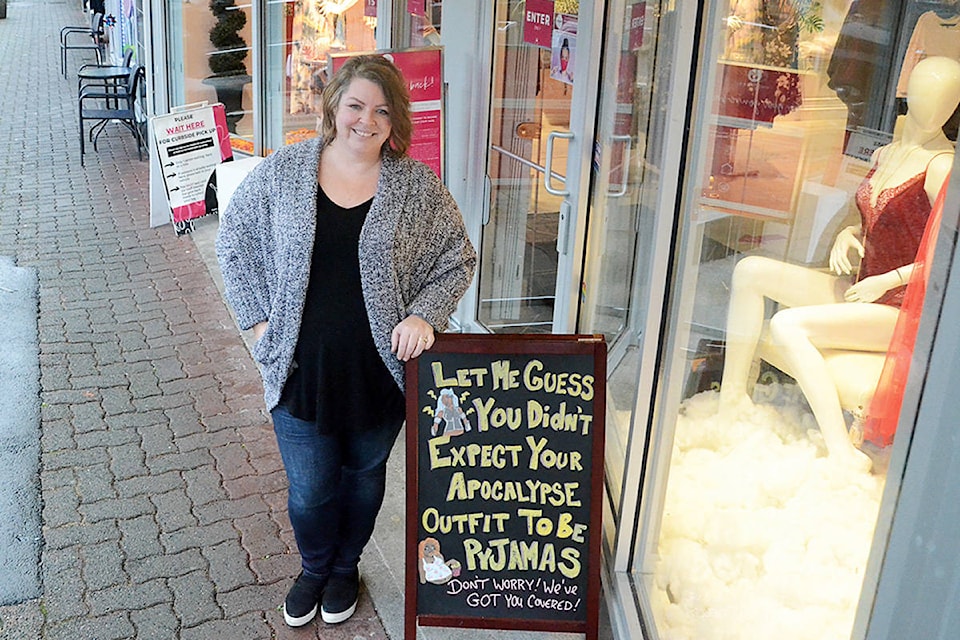 ENTER
back!
PLEASE
WAIT HERE
FOR CURBSIDE PICK UP
LET ME GUESS
YOU DIDN'T
EXPECT YOUR
APOCALYPSE
OUTFIT TO BE
PYJAMAS
DON'T WORRY! WE'VE
GOT YOU COVERED!